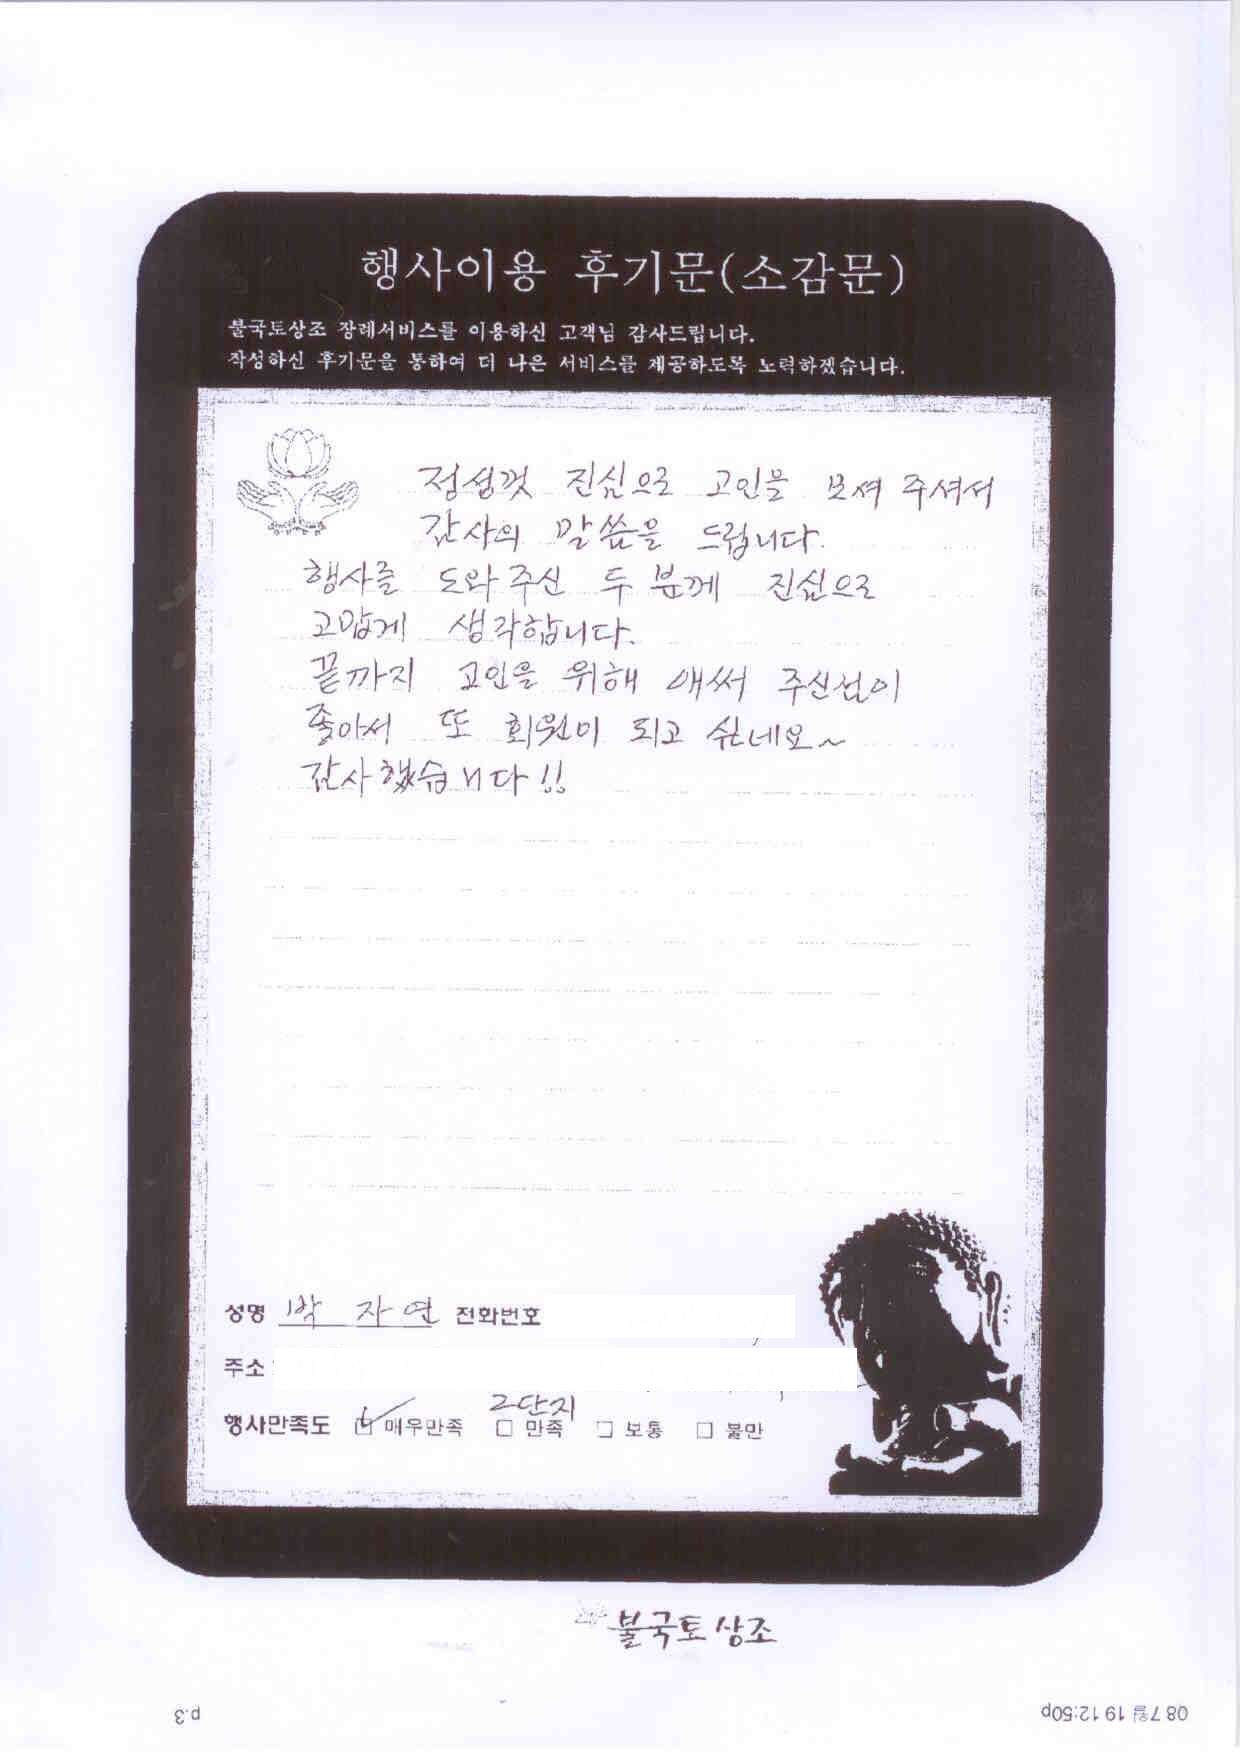 행사이용 후기문(소감문)
불국토상조 장례서비스를 이용하신 고객님 감사드립니다.
작성하신 후기문을 통하여 더 나은 서비스를 제공하도록 노력하겠습니다.
정성껏 진심으로 고인을 모셔 주셔서
감사의 말씀을 드립니다.
행사를 도와주신 두 분께 진심으로
고맙게 생각합니다.
끝까지 고인을 위해 애써 주신섬이
좋아서 또 회원이 되고 싶네요~
감사했습니다!!
성명 박 자연 전화번호
주소
2단지
행사만족도 매우만족 만족 보통 불만
불국토상조
p.3
08 7월 19 12:50p